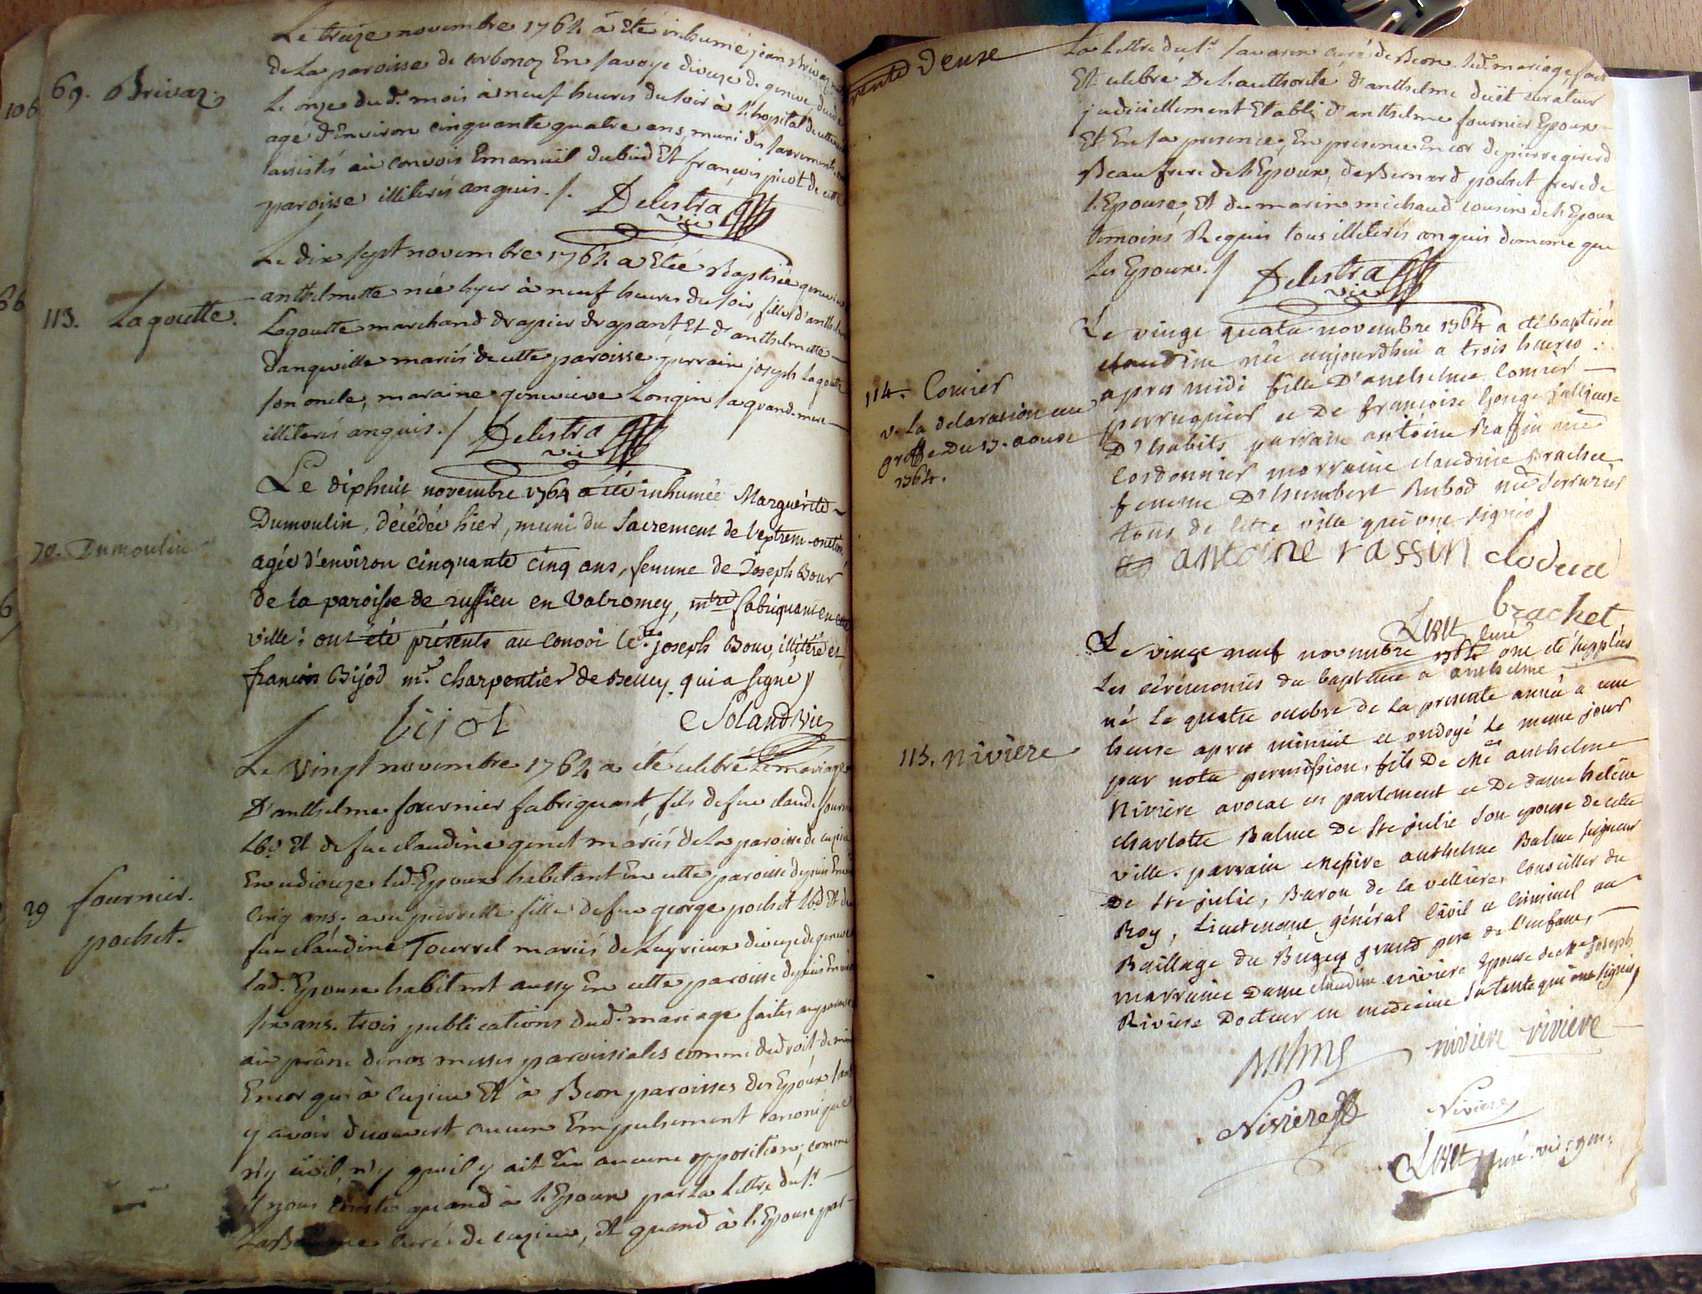 Le treize novembre 1764 a été inhumé jean Brivaz
de La paroisse de corbonoz En savoye diocese de geneve
Le onze dud. mois à neuf heures du soir à l'hopital de cette
agé d'Environ cinquante quatre ans, muni des sacrements
assistés au convois Emanuel dubied Et françois picot de cette
paroisse illiterés enquis ./.
Delestra vic
106
69. Brivaz.
Le dix sept novembre 1764 a Eté Baptisée genevieve
anthelmette née hyer à neuf heures du soir, fille d'anthelme
Lagoutte marchand drapier drapant, Et d'anthelmette
danqueville mariés de cette paroisse. parrain joseph Lagoutte
son oncle, maraine genevieve Longin sa grand mere
illiterés enquis ./
Delestra vic
113. Lagoutte.
Le diphuit novembre 1764 a été inhumée Marguérite
Dumoulin, décédée hier, muni du Sacrement de l'extrem-onction
agée d'environ cinquante cinq ans, femme de Joseph Bour
de la paroisse de ruffieu en Valromey, mtre fabriquant en cette
ville: ont été présents au convoi le sr joseph Bour, illitéré et
francois Bijod mtre charpentier de Belley, qui a signé,
bijot
Soland vic
70. Dumoulin
Le vingt novembre 1764 a été celébré Le mariage
D'anthelme fournier fabriquant, fils de feu claude fournier
Lbr Et de feu claudine genet mariés de La paroisse de cuzieu
En ce dioceze led. Epoux habitant En cette paroisse depuis Environ
cinq ans. avec pierrette fille de feu george pochet Lbr Et de
feu claudine Tournel mariés de Leyrieux dioceze de geneve
lad. Epouse habitant aussy En cette paroisse depuis Environ
six ans. trois publications dud. mariage faites auparavant
au prône de nos messes paroissiales comme de droit de même
Encor qu'à cuzieu Et à Beon paroisses des Epoux sans
y avoir decouvert aucun Empechement canonique
ny civil, ny qu'il y ait Eu aucune opposition, comme
il nous conste quand à L'Epoux par la Lettre du sr
curé de cuzieu, Et quand à L'Epouse par
29 fournier.
pochet.
trente Deuse
La Lettre du sr savarin curé de Beon. led. mariage fait
Et celebré De L'authorité d'anthelme curateur
judiciellement Etabli d'anthelme fournier Epoux
Et En sa presence, En presence Encor de pierre girerd
Beaufrere de L'Epoux, de Bernard pochet frere de
L'Epouse, Et de marin michaud cousin de L'Epoux
temoins Requis tous illiterés enquis de meme que
Les Epoux ./
Delestra vic
Le vingt quatre novembre 1764 a été baptisée
claudine née aujourdhui a trois heures
apres midi fille D'anthelme Comier
perruquier et De françoise
D'habits parrain antoine Raffin me
Cordonnier marraine claudine brachet
femme D'humbert Rubod me Serrurier
tous de cette ville qui ont signés
antoine rassin clodine
brachet
curé
114. Comier
v. La declaration au
greffe Du 17. aoust
1764.
Le vingt neuf novembre 1764 ont été suppléés
Les cérémonies du baptême a anthelme
né Le quatre octobre de la presente année a une
heure apres minuit et ondoyé Le meme jour
par notre permission, fils De Me anthelme
Nivière avocat en parlement et De dame helene
charlotte Balme De Ste julie Son epouse de cette
ville. parrain Messire anthelme Balme seigneur
De Ste julie, Baron de la velliere, Conseiller du
Roy, Lieutenant général Civil et Criminel au
Baillage du Bugey grand pere de L'enfant,
marraine Dame claudine niviere epouse de Me Joseph
Riviere Docteur en medecine sa tante qui ont signés,
niviere riviere
Niviere
Niviere
curé. vic. gen.
115. niviere